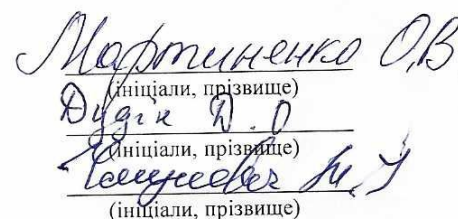 Мартиненко О.В
(ініціали, прізвище)
Дудік Д.О
(ініціали, прізвище)
(ініціали, прізвище)